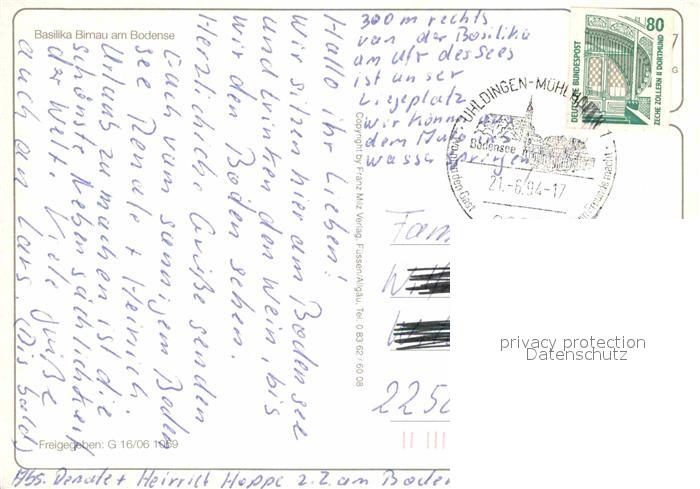 Basilika Birnau am Bodense
Hallo ihr Lieben!
Wir sitzen hier am Bodensee
und trinken den Wein, bis
wir den Boden sehen.
Herzliche Grüße senden
Euch vom sonnigem Boden
see Renate + Heinrich
Urlaub zu machen ist die
schönste Nebensächlichkeit
der Welt. Viele Grüße
auch an Lars. (Bis bald)
300 m rechts
von der Basilika
am Ufr des Sees
ist unser
Liegeplatz
wir können aus
dem
wasser springen
Copyright by Franz Milz Verlag, Füssen/Allgäu, Tel. 0 83 62 / 60 08
DEUTSCHE BUNDESPOST
80
ZECHE ZOLLERN II DORTMUND
7
G
UHLDINGEN-MÜHLHOFEN 1
Bodensee
21.-6.94-17
den Gast
Freude macht
Fam
225
privacy protection
Datenschutz
Freigegeben: G 16/06 1069
Abs. Renate + Heinrich Hoppe z.Z. am Boden